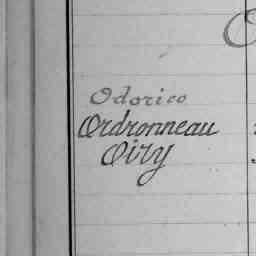 Odorico
Ordronneau
Oiry